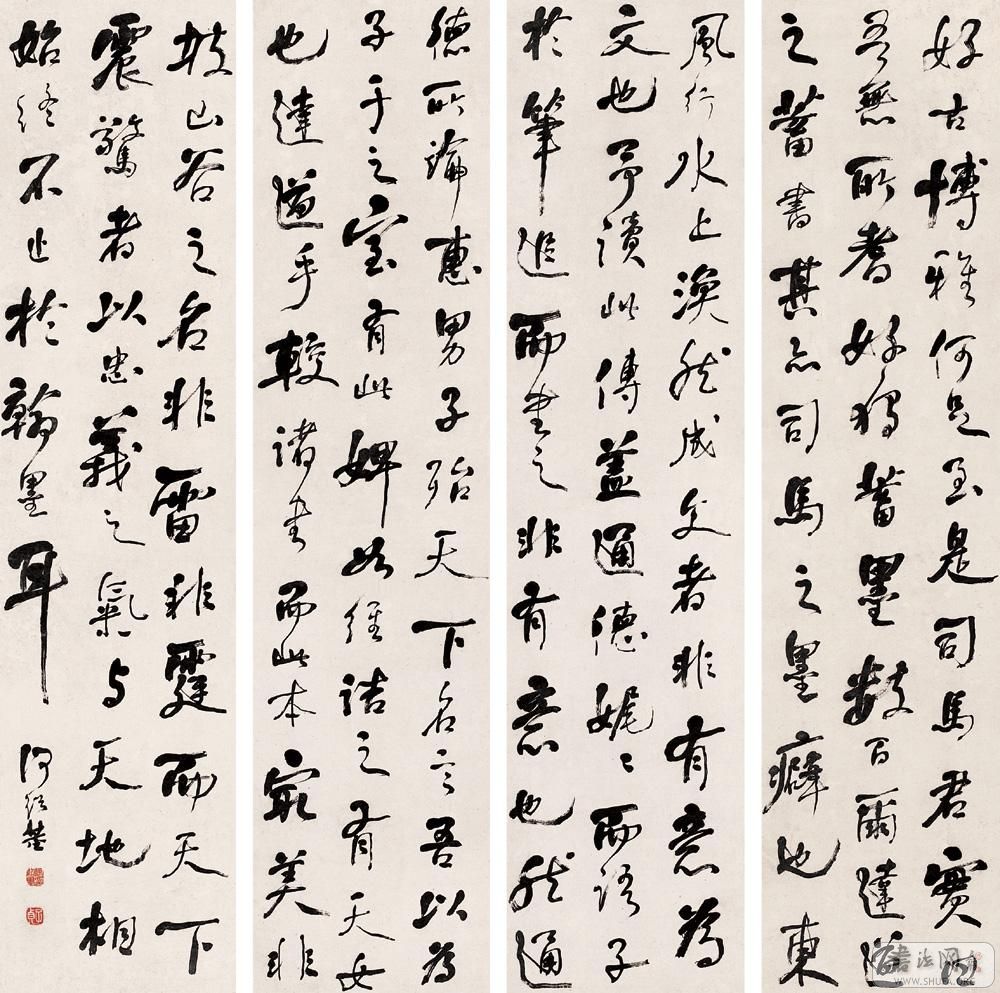 好古博雅何足至是司馬君實
吾無所耆好獨蓄墨數百爾達道
之蓄書甚亦司馬之墨癖也東
風行水上渙然成文者非有意為
文也予讀此傳蓋通德娓娓而語子
於筆追而書之非有意也然通
德所論惠男子殆天下名言吾以為
子于之室有此婢如維詰之有天女
也達道手較諸書而此本寂美非
坡山谷之名非雷非霆而天下
震驚者以忠義之氣与天地相
始終不止於翰墨耳
何紹基
書法网
WWW.SHUFA.ORG